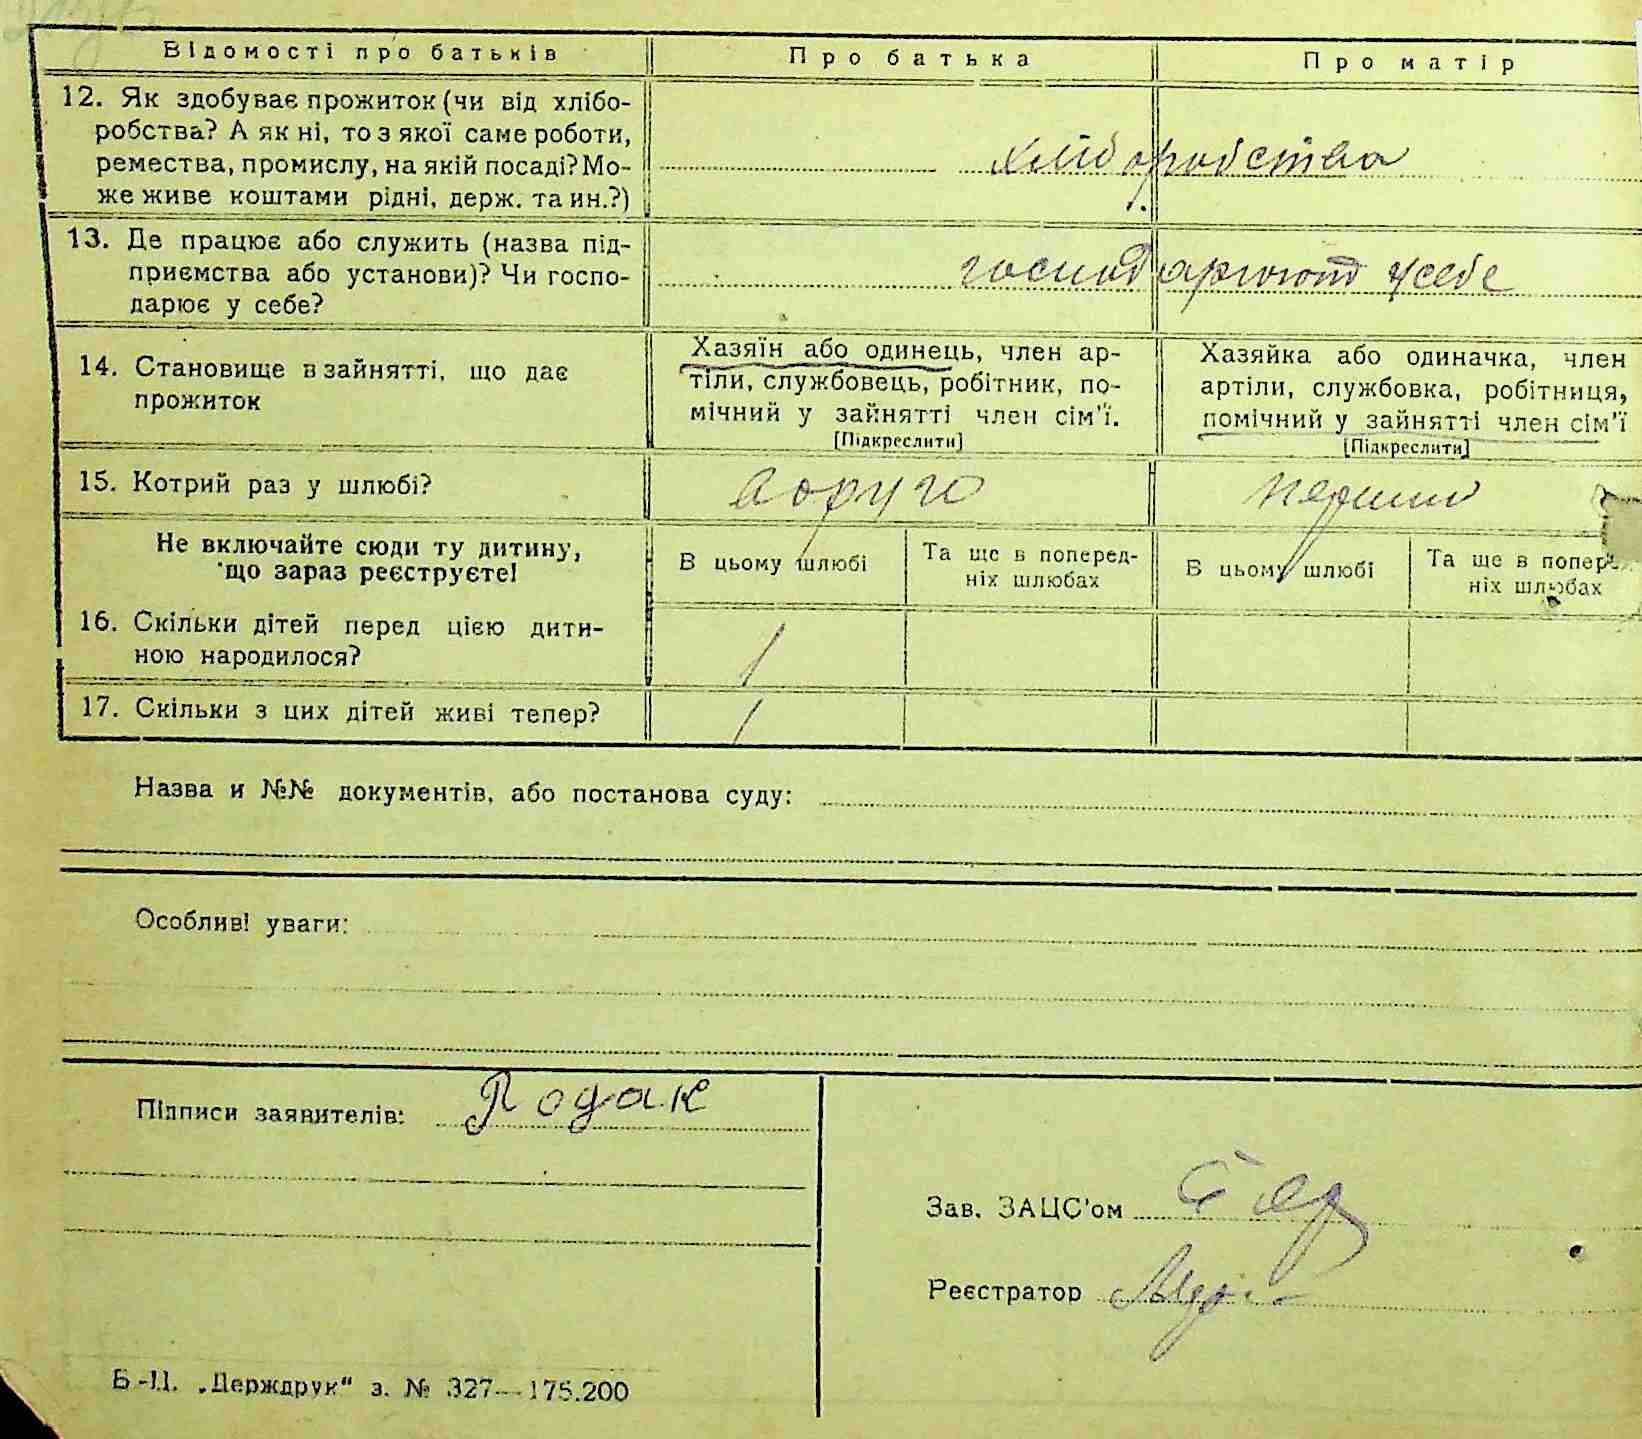 Відомості про батьків Про батька Про матір
12. Як здобуває прожиток (чи від хлібо-
робства? А як ні, то з якої саме роботи,
ремества, промислу, на якій посаді? Мо-
же живе коштами рідні, держ. та ин.?)
хліборобства
13. Де працює або служить (назва під-
приємства або установи)? Чи госпо-
дарює у себе?
господарюют у себе
14. Становище в зайнятті, що дає
прожиток
Хазяїн або одинець, член ар-
тіли, службовець, робітник, по-
мічний у зайнятті член сім'ї.
[Підкреслити]
Хазяйка або одиначка, член
артіли, службовка, робітниця,
помічний у зайнятті член сім'ї
[Підкреслити]
15. Котрий раз у шлюбі?
Не включайте сюди ту дитину,
що зараз реєструєте!
В цьому шлюбі
Та ще в поперед-
ніх шлюбах
В цьому шлюбі
Та ще в попер
ніх шлюбах
16. Скільки дітей перед цією дити-
ною народилося?
1
17. Скільки з цих дітей живі тепер?
1
Назва и №№ документів, або постанова суду:
Особливі уваги:
Підписи заявителів:
Зав. ЗАЦС'ом
Реєстратор
Б-Ц. „Держдрук" з. № 327—175.200